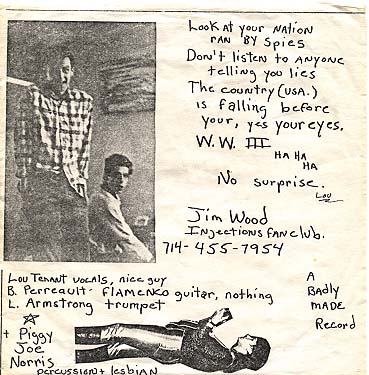 Look at your nation
ran by spies
Don't listen to anyone
telling you lies
The country (USA.)
is falling before
your, yes your eyes.
W.W. III
HA HA
HA
No surprise.
Lou
Jim Wood
Injections fan club.
714-455-7954
Lou Tennant vocals, nice guy
B. Perreault - flamenco guitar, nothing
L. Armstrong trumpet
+ Piggy
Joe
Norris
percussion + lesbian
A
Badly
made
Record